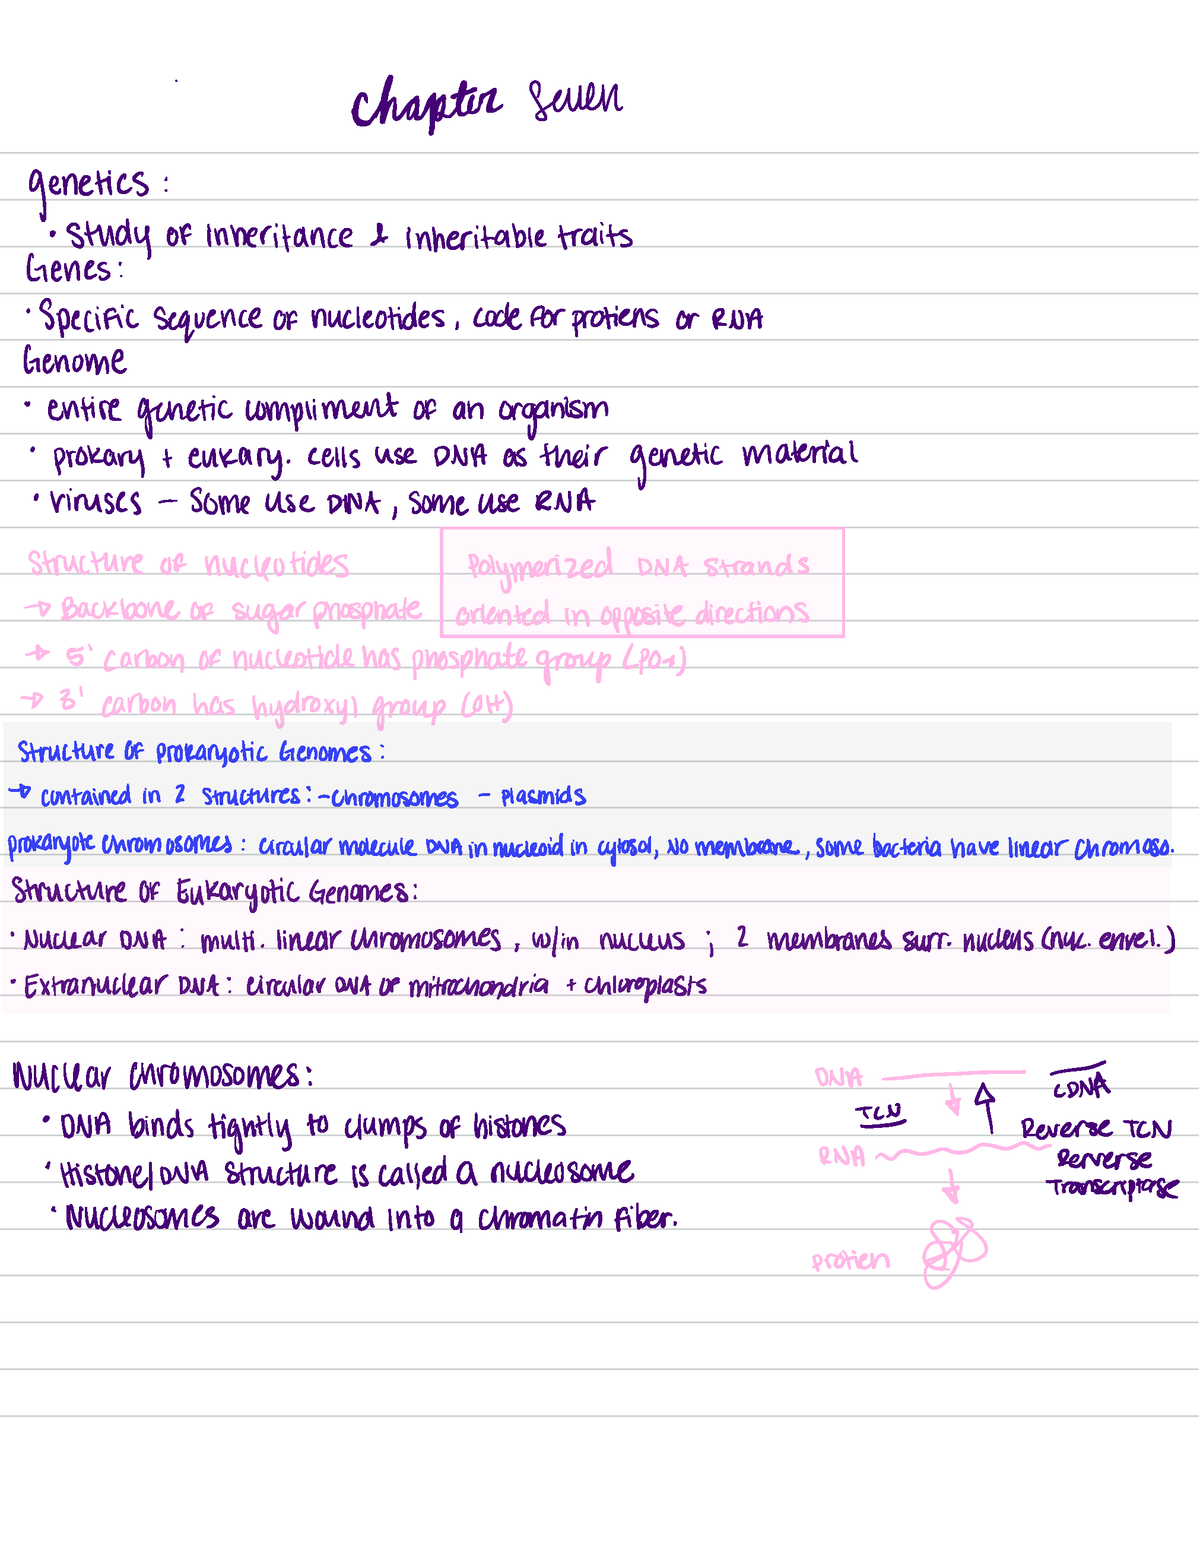 Chapter Seven
genetics :
• Study of inheritance & inheritable traits
Genes :
• Specific sequence of nucleotides, code for protiens or RNA
Genome
• entire genetic compliment of an organism
• prokary + eukary. cells use DNA as their genetic material
• viruses – Some use DNA, some use RNA
Structure of nucleotides
→ Backbone of sugar phosphate
Polymerized DNA strands
oriented in opposite directions
→ 5' carbon of nucleotide has phosphate group (PO4)
→ 3' carbon has hydroxyl group (OH)
Structure of prokaryotic Genomes :
→ contained in 2 structures : - chromosomes - plasmids
prokaryote chromosomes : circular molecule DNA in nucleoid in cytosol, No membrane, some bacteria have linear chromoso.
Structure of Eukaryotic Genomes :
• Nuclear DNA : multi. linear chromosomes, w/in nucleus ; 2 membranes surr. nucleus (nuc. envel.)
• Extranuclear DNA : circular DNA of mitochondria + chloroplasts
Nuclear chromosomes :
• DNA binds tightly to clumps of histones
• Histone/DNA structure is called a nucleosome
• Nucleosomes are wound into a chromatin fiber.
DNA
cDNA
TCN
Reverse TCN
RNA
Rerverse
Transcriptase
protien